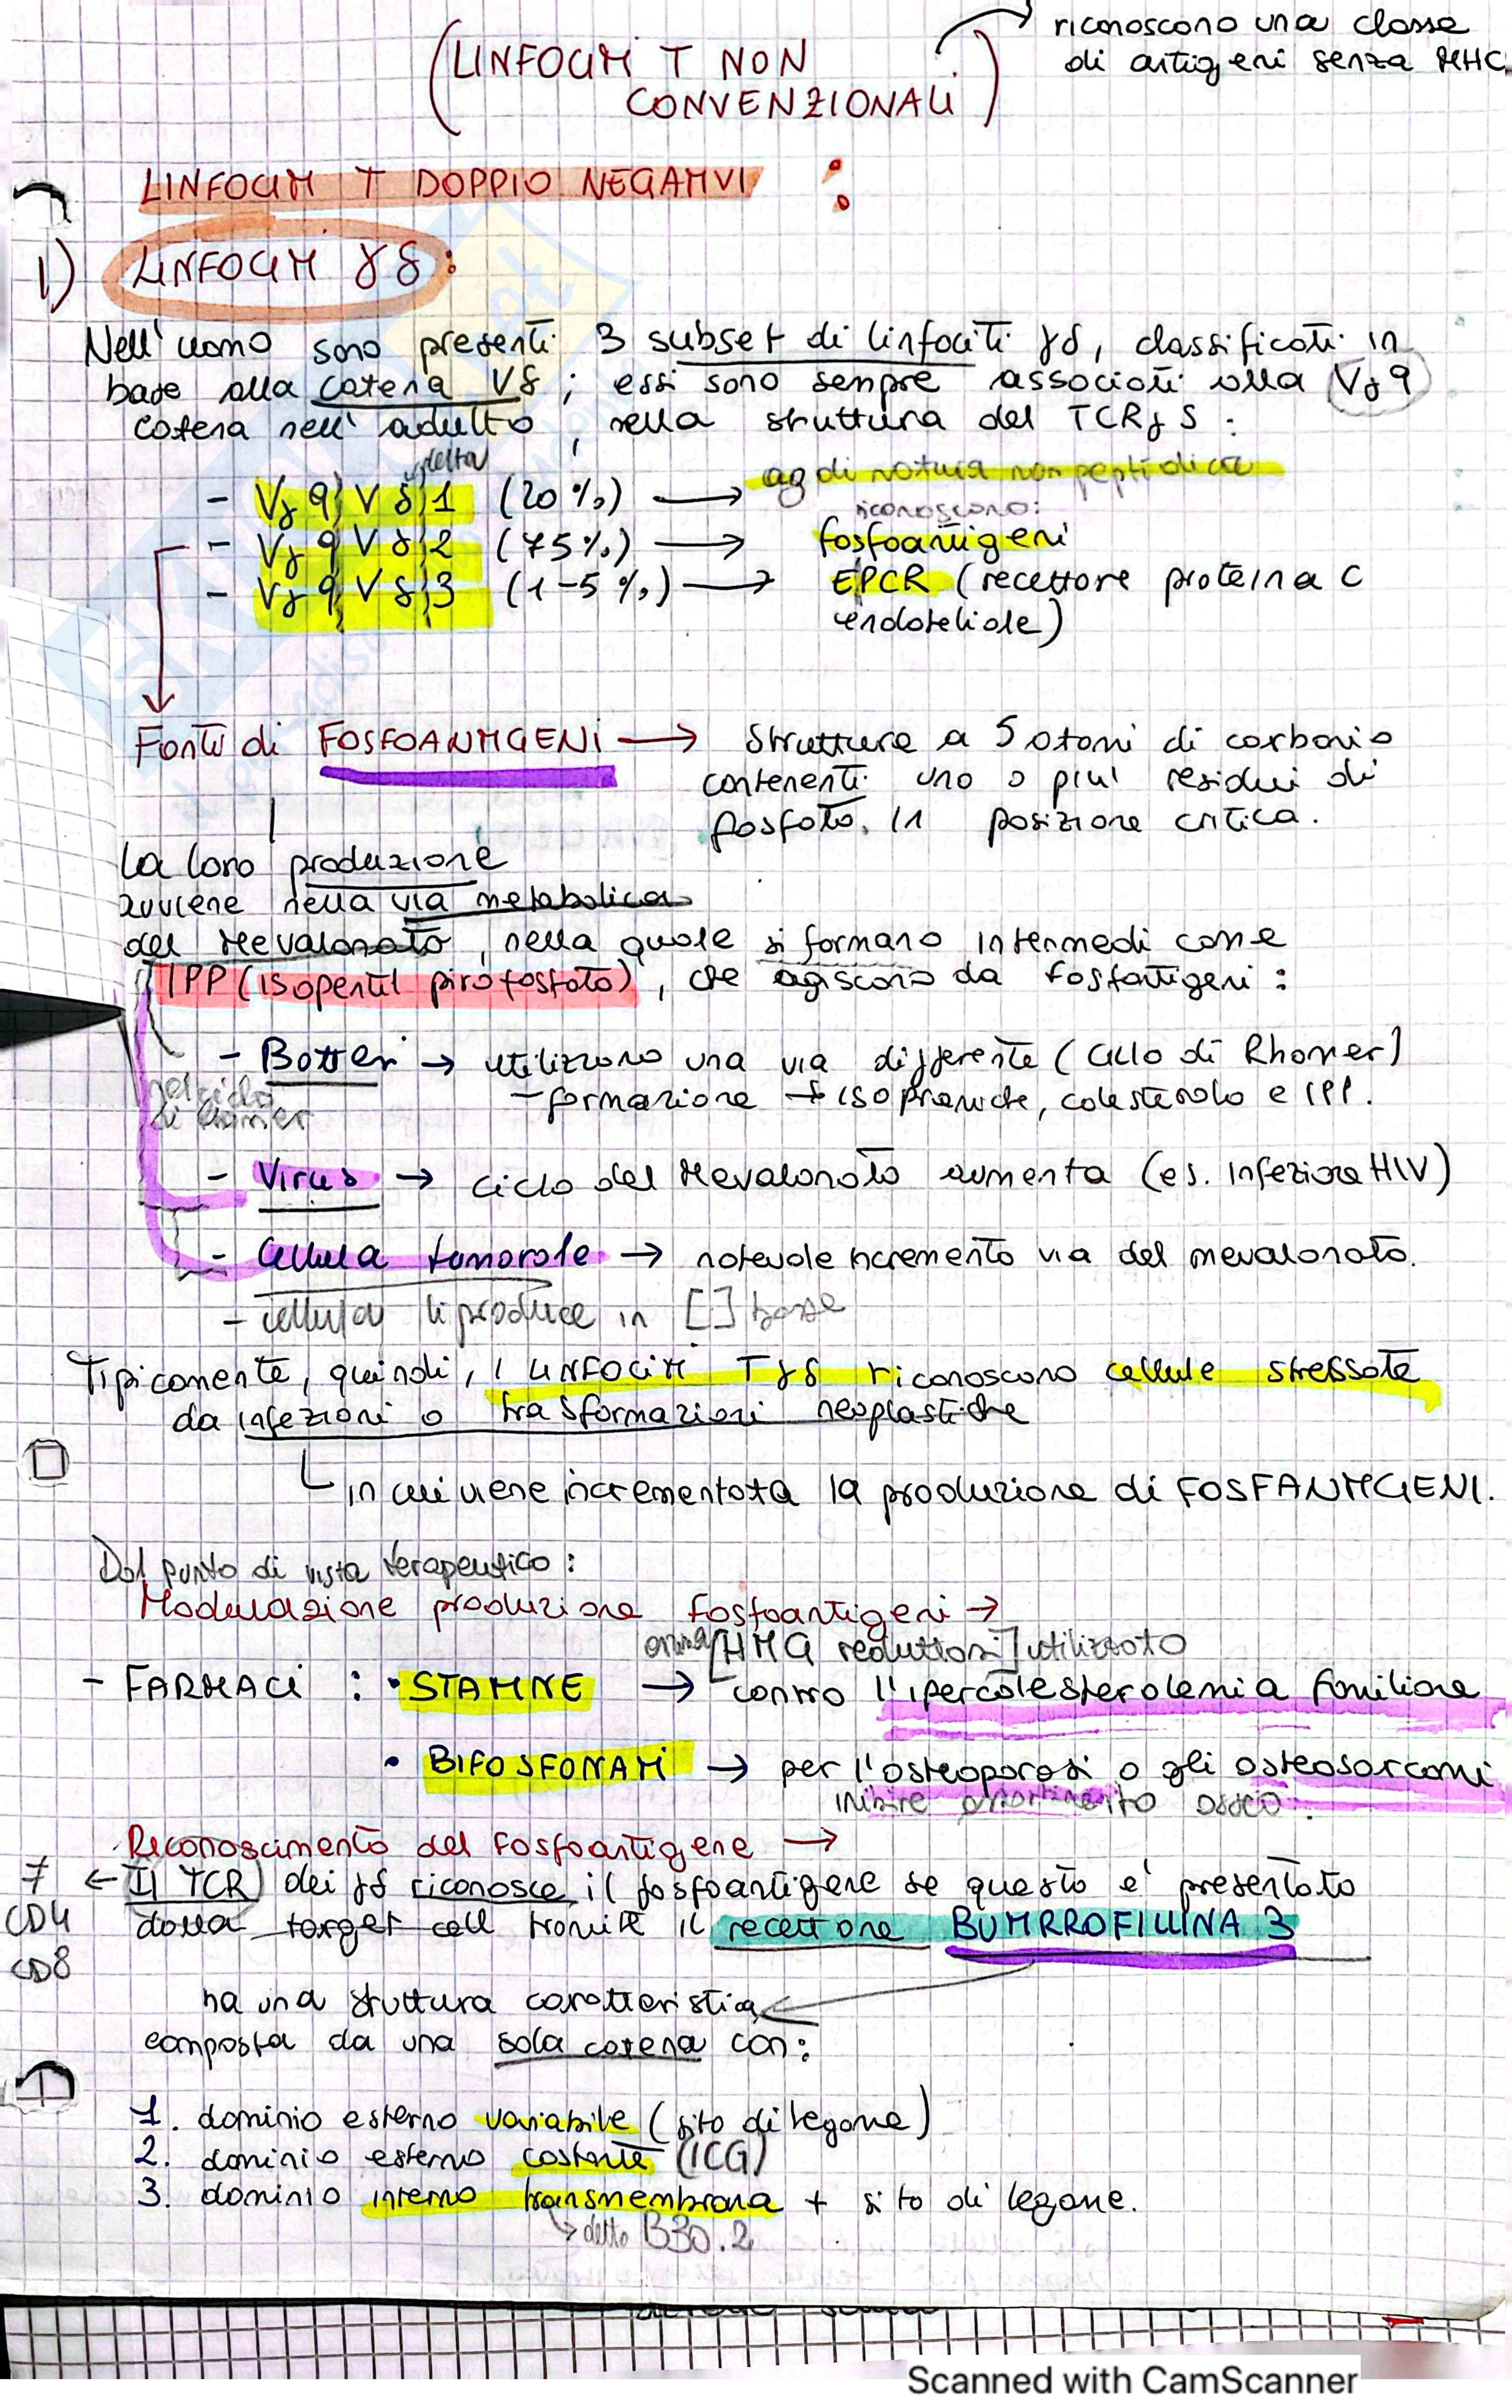 riconoscono una classe
di antigeni senza MHC
(LINFOCITI T NON
CONVENZIONALI)
LINFOCITI T DOPPIO NEGATIVI :
1) LINFOCITI γδ:
Nell'uomo sono presenti 3 subset di linfociti γδ, classificati in
base alla catena Vδ ; essi sono sempre associati alla Vγ9
catena nell'adulto, nella struttura del TCRγδ :
delta
ag di natura non peptidica
- Vγ9 Vδ1 (20%) →
riconoscono:
- Vγ9 Vδ2 (75%) → fosfoantigeni
- Vγ9 Vδ3 (1-5%) → EPCR (recettore proteina C
endoteliale)
Fonti di FOSFOANTIGENI → Strutture a 5 atomi di carbonio
contenenti uno o piu' residui di
fosfato, in posizione critica.
La loro produzione
avviene nella via metabolica
del Mevalonato, nella quale si formano intermedi come
IPP (isopentil pirofosfato), che agiscono da fosfantigeni :
- Batteri → utilizzano una via differente (Ciclo di Rhomer)
- formazione → isopreniche, colesterolo e IPP.
nel ciclo
di Rhomer
- Virus → ciclo del Mevalonato aumenta (es. Infezione HIV)
- Cellula tumorale → notevole incremento via del mevalonato.
- cellula li produce in [] basse
Tipicamente, quindi, i LINFOCITI Tγδ riconoscono cellule stressate
da infezioni o trasformazioni neoplastiche
in cui viene incrementata la produzione di FOSFANTIGENI.
Dal punto di vista terapeutico :
Modulazione produzione fosfoantigeni →
[HMG reduttasi] utilizzato
- FARMACI : • STATINE → contro l'ipercolesterolemia familiare
• BIFOSFONATI → per l'osteoporosi o gli osteosarcomi
inibire osseo.
Riconoscimento del fosfoantigene →
≠ ← Il TCR dei γδ riconosce il fosfoantigene se questo e' presentato
CD4
dalla target cell tramite il recettore BUTIRROFILLINA 3
CD8
ha una struttura caratteristica
composta da una sola catena con:
1. dominio esterno variabile (sito di legame)
2. dominio esterno costante (ICG)
3. dominio interno transmembrana + sito di legame.
↳ detto B30.2
Scanned with CamScanner